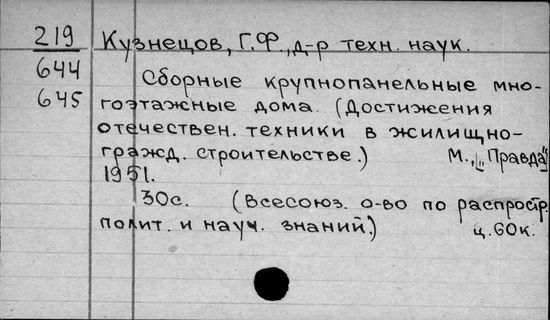 219 Кузнецов, Г.Ф., д-р техн. наук.
644 Сборные крупнопанельные мно-
645 гоэтажные дома. (Достижения
отечествен. техники в жилищно-
гражд. строительстве.) М., "Правда"
1951.
30с. (Всесоюз. о-во по распростр.
полит. и науч. знаний.) ц. 60к.